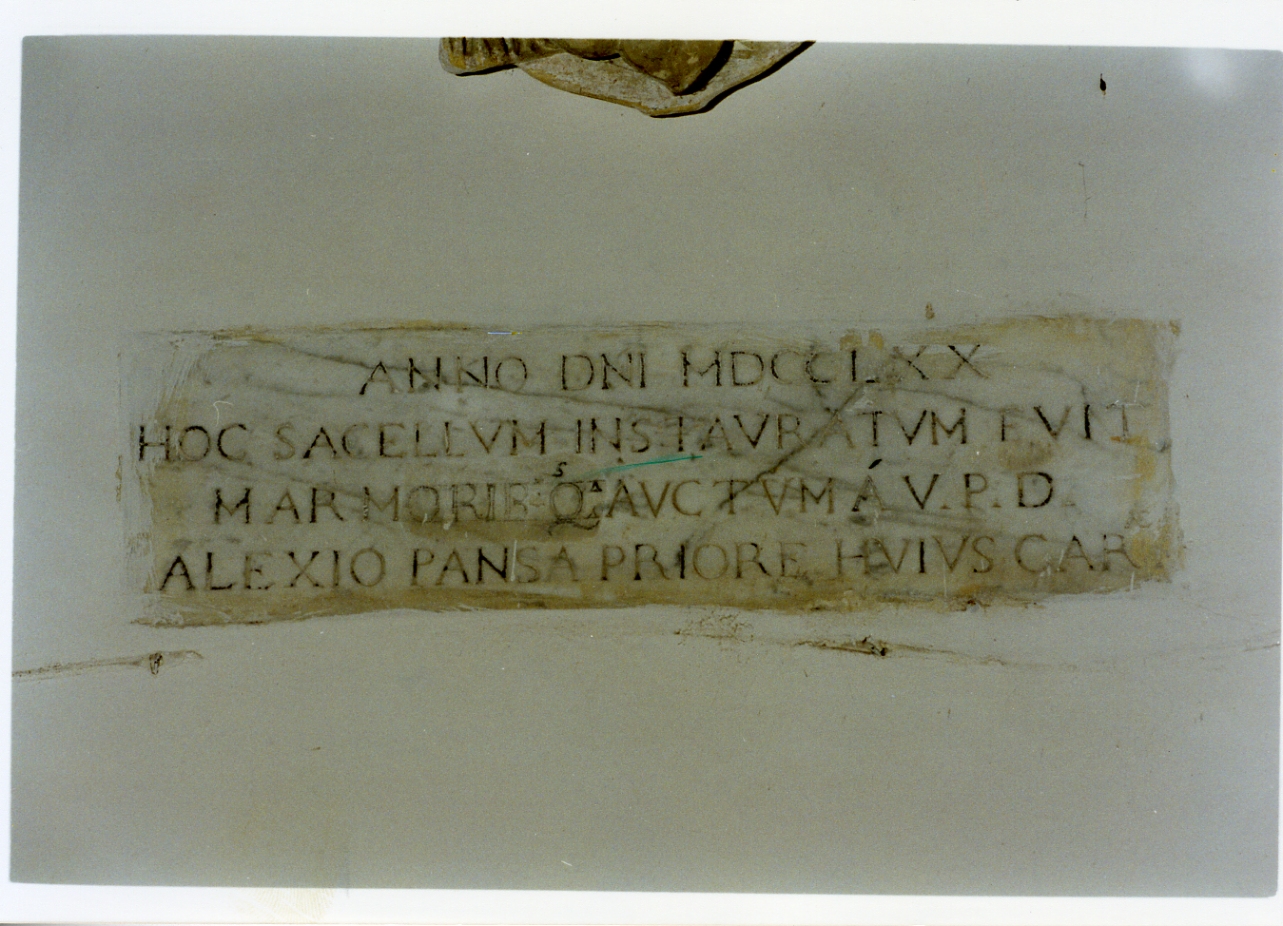 ANNO DNI MDCCLXX
HOC SACELLVM INSTAVRATVM FVIT
MARMORIBˢQ. AVCTVM Á V.P.D.
ALEXIO PANSA PRIORE HVIVS CAR